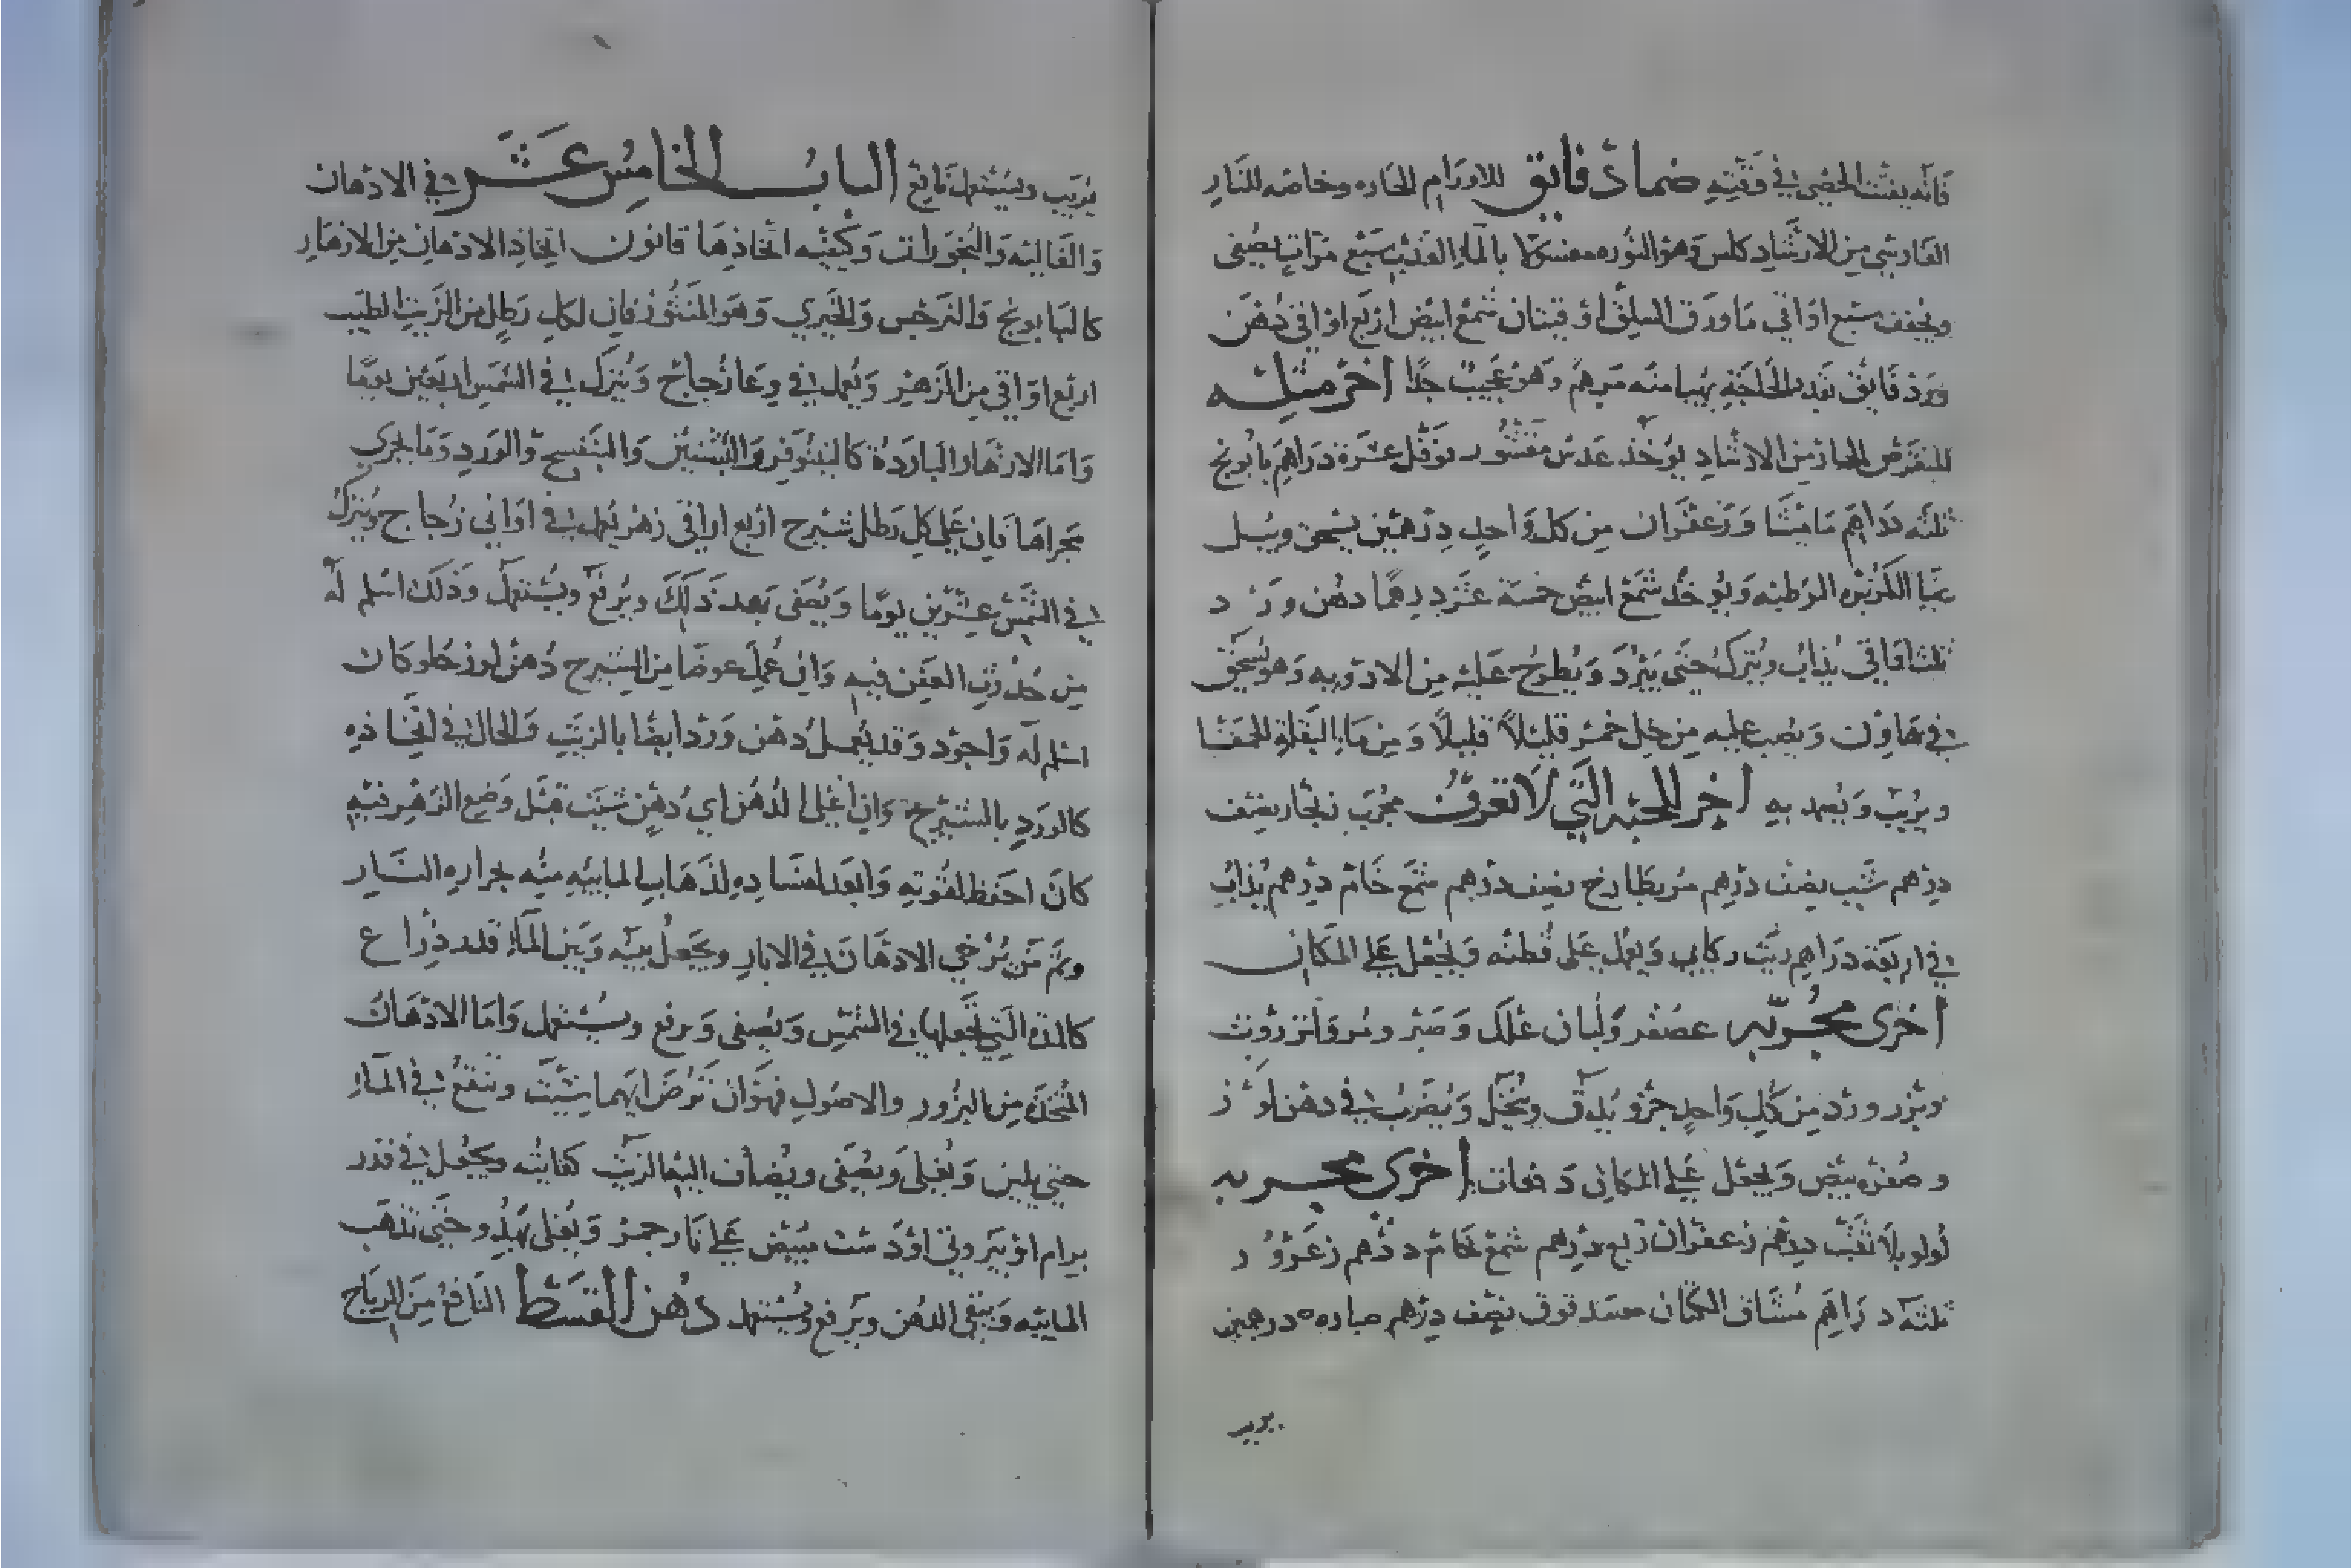 فانه يفتت الحصى في وقته ضماد فايق للاورام الحاره وخاصه للنار
الفارسي من الارشاد كلس وهو النوره مغسولا بالماء العذب سبع مرات يصفى
ويجفف سبع اواقي ماورق السلق اوقيتان شمع ابيض اربع اواقي دهن
ورد فايق بقدر الحاجة يهيا منه مرهم وهو عجيب جدا اخر مثله
الحار من الارشاد يوخذ عدس مقشور فوفل عشرة دراهم بابونج
ثلثه دراهم مامیثا وزعفران من كل واحد درهمين يسحق ويبل
بما الكزبره الرطبه ويوخذ شمع ابيض خمسة عشر درهما دهن ورد
يذاب ويترك حتى يبرد ويطرح عليه من الادويه وهو يسحق
في هاون ويصب عليه من خل خمر قليلا قليلا ومن ماء البقلة الحمقا
ويربب ويضمد به اخر للحبه التي لا تعرف مجرب زنجار نصف
درهم شب نصف درهم مر بطارخ نصف درهم شمع خام درهم يذاب
في اربعة دراهم زيت ركابي ويعمل على قطنه ويجعل على المكان
اخرى مجربه عصفر ولبان علك وصبر ومر وانزروت
وبزر ورد من كل واحد جزو يدق وينخل ويضرب في دهن لوز
وصفره بيض ويجعل على المكان دفعات اخرى مجربه
لولو بلا ثقب درهم زعفران ربع درهم شمع خام درهم زعرور
ثلثه دراهم مشاق الكتان نصف درهم صباره درهمين
يربب
يربب ويستعمل نافع الباب الخامس عشر في الادهان
والغاليه والبخورات وكيفيه اتخاذها قانون اتخاذ الادهان من الازهار
كالبابونج والنرجس والخيري وهو المنثور فان لكل رطل من الزيت الطيب
اربع اواقي من الزهر ويعمل في وعا زجاج ويترك في الشمس اربعين يوما
واما الازهار الباردة كالنينوفر والبشنين والبنفسج والورد وما يجري
مجراها فان على كل رطل شيرج اربع اواقي زهر يعمل في اواني زجاج ويترك
في الشمس عشرين يوما ويصفى بعد ذلك ويرفع ويستعمل وذلك اسلم له
من حدوث العفن فيه وان عمل عوضا من الشيرج دهن لوز حلو كان
اسلم له واجود وقد يعمل دهن ورد ايضا بالزيت والحال في اتخاذه
كالورد بالشيرج وان اغلي الدهن اي دهن شيت قبل وضع الزهر فيه
كان احفظ لقوته وابعد لفساده لذهاب المائيه منه بحراره النار
وثم من يرخي الادهان في الابار ويجعل بينه وبين الماء قدر ذراع
كالمده التي تجعلها في الشمس ويصفى ويرفع ويستعمل واما الادهان
المتخذه من البزور والاصول فهو ان ترض ايهما شيت وتنقع في الماء
حتى يلين ويغلى ويصفى ويضاف اليه الزيت كفايته ويجعل في قدر
برام او بيروني او دست مبيض على نار جمر ويغلى بهدو حتى تذهب
المائيه ويبقى الدهن ويرفع ويستعمل دهن القسط النافع من الرياح